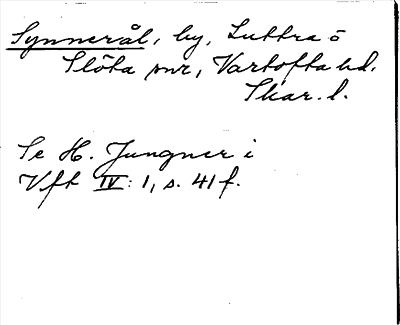 Synnerål, by, Luttra o
Slöta snr, Vartofta hd.
Skar. l.
Se H. Jungner i
Vft IV: 1, s. 41 f.